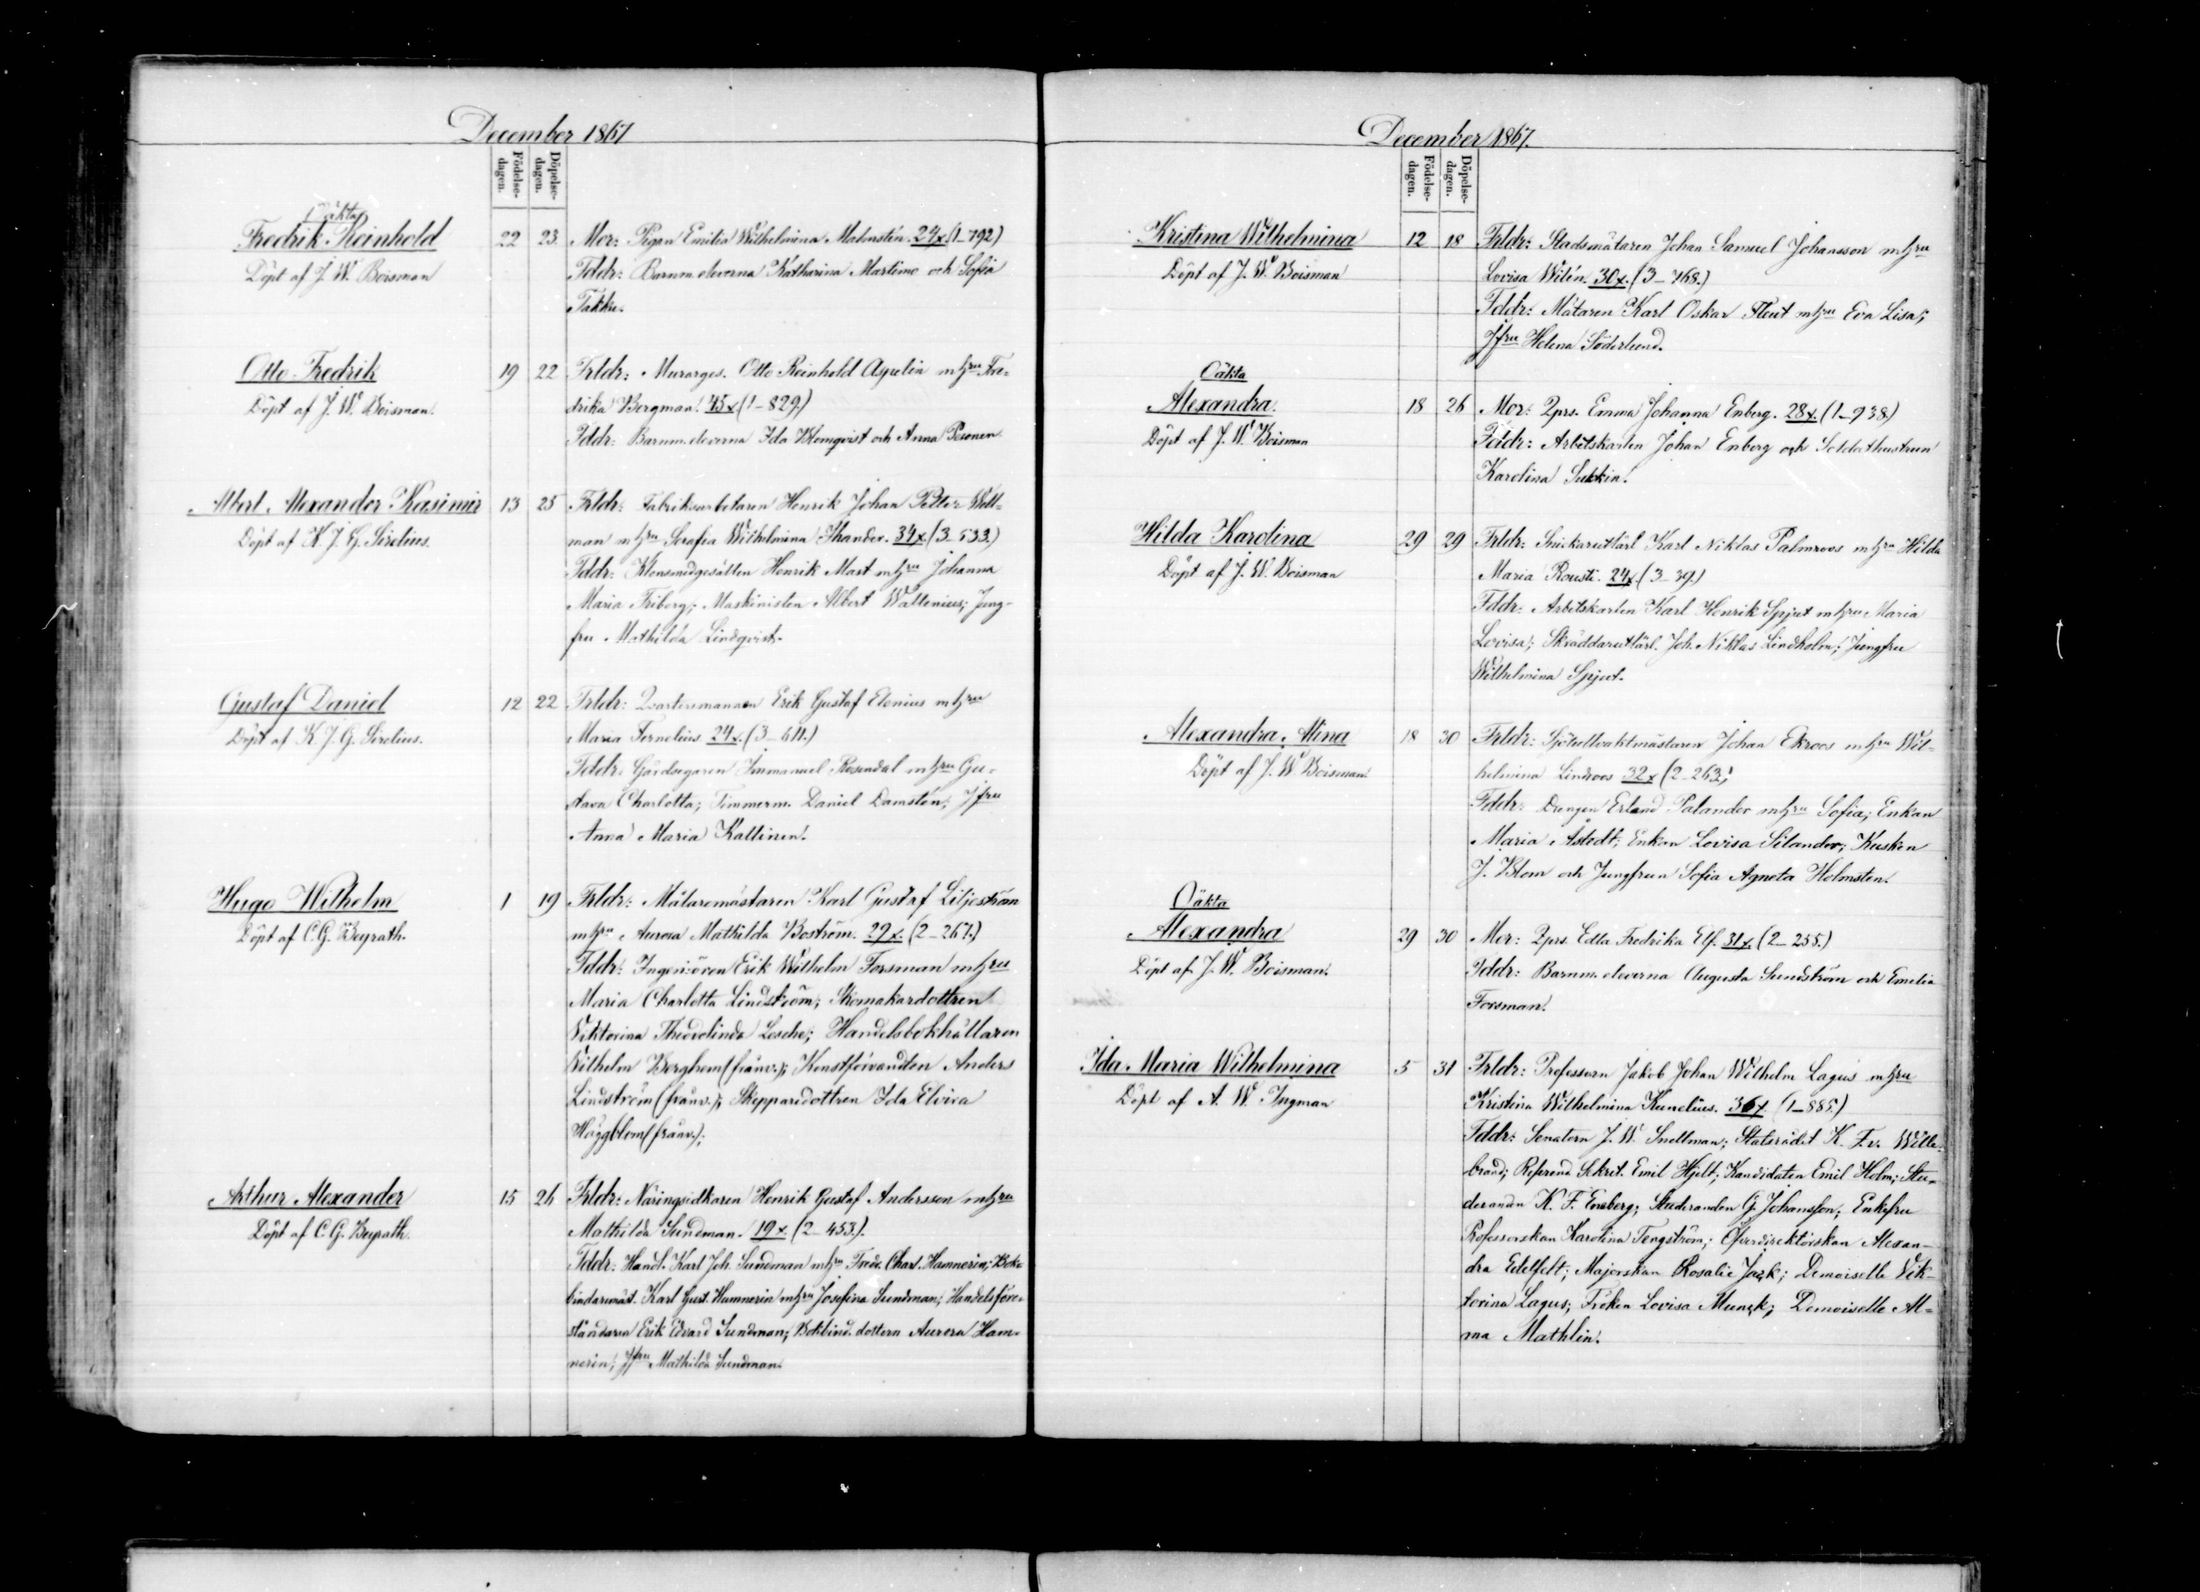 December 1867
Födelse-
dagen.
Döpelse-
dagen.
Oäkta
Fredrik Reinhold
Döpt af J. W. Boisman
22 23 Mor: Pigan Emilia Wilhelmina Malmstén. 24 x (1–792)
Fddr: Barnm. eleverna Katharina Martimo och Sofia
Takku.
Otto Fredrik
Döpt af J. W. Boisman.
19 22 Frldr: Murarges. Otto Reinhold Agrelin m hru Fre-
drika Bergman. 45 x (1–829.)
Fddr: Barnm. eleverna Ida Blomqvist och Anna Pesonen
Albert Alexander Kasimir
Döpt af K. J. G. Sirelius.
13 25 Frldr: Fabriksarbetaren Henrik Johan Petter Well-
man m hru Serafia Wilhelmina Thander. 34 x (3–533.)
Fddr: Klensmedgesällen Henrik Mart m hru Johanna
Maria Friberg; Maskinisten Albert Wallenius; Jung-
fru Mathilda Lindqvist.
Gustaf Daniel
Döpt af K. J. G. Sirelius.
12 22 Frldr: Qvartersmannen Erik Gustaf Elenius m hru
Maria Fornelius 24 x. (3–611.)
Fddr: Gårdsegaren Immanuel Rosendal m hru Gu-
stava Charlotta; Timmerm. Daniel Damstén; Jfru
Anna Maria Kallinen.
Hugo Wilhelm
Döpt af C. G. Beyrath.
1 19 Frldr: Målaremästaren Karl Gustaf Liljeström
m hru Aurora Mathilda Boström. 29 x. (2–267.)
Fddr: Ingeniören Erik Wilhelm Forsman m hru
Maria Charlotta Lindström; Skomakardottren
Viktorina Theodolinda Lesche; Handelsbokhållaren
Wilhelm Berghem (frånv.); Konstförvandten Anders
Lindström (frånv.); Skepparedottren Ida Elvira
Häggblom (frånv.);
Arthur Alexander
Döpt af C. G. Beyrath.
15 26 Frldr: Näringsidkaren Henrik Gustaf Andersson m hru
Mathilda Sundman. 19 x. (2–453).
Fddr: Handl. Karl Joh. Sundman m hru Fredr. Charl. Hamnerin; Bok-
bindaremäst. Karl Gust. Hamnerin m hru Josefina Sundman; Handelsföre-
ståndaren Erik Edvard Sundman; Bokbind. dottern Aurora Ham-
nerin; Jfru Mathilda Sundman.
December 1867.
Födelse-
dagen.
Döpelse-
dagen.
Kristina Wilhelmina
Döpt af J. W. Boisman
12 18 Frldr: Stadsmätaren Johan Samuel Johansson m hru
Lovisa Wilén. 30 x. (3–768.)
Fddr: Mätaren Karl Oskar Flout m hru Eva Lisa;
Jfru Helena Söderlund.
Oäkta
Alexandra.
Döpt af J. W. Boisman
18 26 Mor: Qprs. Emma Johanna Enberg. 28 x. (1–938.)
Fddr: Arbetskarlen Johan Enberg och Soldathustrun
Karolina Sukkia.
Hilda Karolina
Döpt af J. W. Boisman
29 29 Frldr: Snickareutlärl. Karl Niklas Palmroos m hru Hilda
Maria Rousti. 24 x (3–39.)
Fddr: Arbetskarlen Karl Henrik Spjut m hru Maria
Lovisa; Skräddareutlärl. Joh. Niklas Lindholm; Jungfru
Wilhelmina Spjut.
Alexandra Alina
Döpt af J. W. Boisman.
18 30 Frldr: Sjötullvaktmästaren Johan Ekroos m hru Wil-
helmina Lindroos 32 x (2–263.)
Fddr: Drengen Erland Palander m hru Sofia; Enkan
Maria Åstedt; Enkan Lovisa Silander; Kusken
J. Blom och Jungfrun Sofia Agneta Holmsten.
Oäkta
Alexandra
Döpt af J. W. Boisman.
29 30 Mor: Qprs. Edla Fredrika Elf. 31 x. (2–255.)
Fddr: Barnm. eleverna Augusta Sundström och Emelia
Forsman.
Ida Maria Wilhelmina
Döpt af A. W. Ingman
5 31 Frldr: Professorn Jakob Johan Wilhelm Lagus m hru
Kristina Wilhelmina Kunelius. 36 x (1–885.)
Fddr: Senatorn J. W. Snellman; Statsrådet K. F. v. Wille-
brand; Referend. Sekret. Emil Hjelt; Kandidaten Emil Holm; Stu-
deranden K. F. Eneberg; Studeranden G. Johansson; Enkefru
Professorskan Karolina Tengström; Öfverdirektörskan Alexan-
dra Edelfelt; Majorskan Rosalie Jack; Demoiselle Vik-
torina Lagus; Fröken Lovisa Munck; Demoiselle Al-
ma Mathlin.